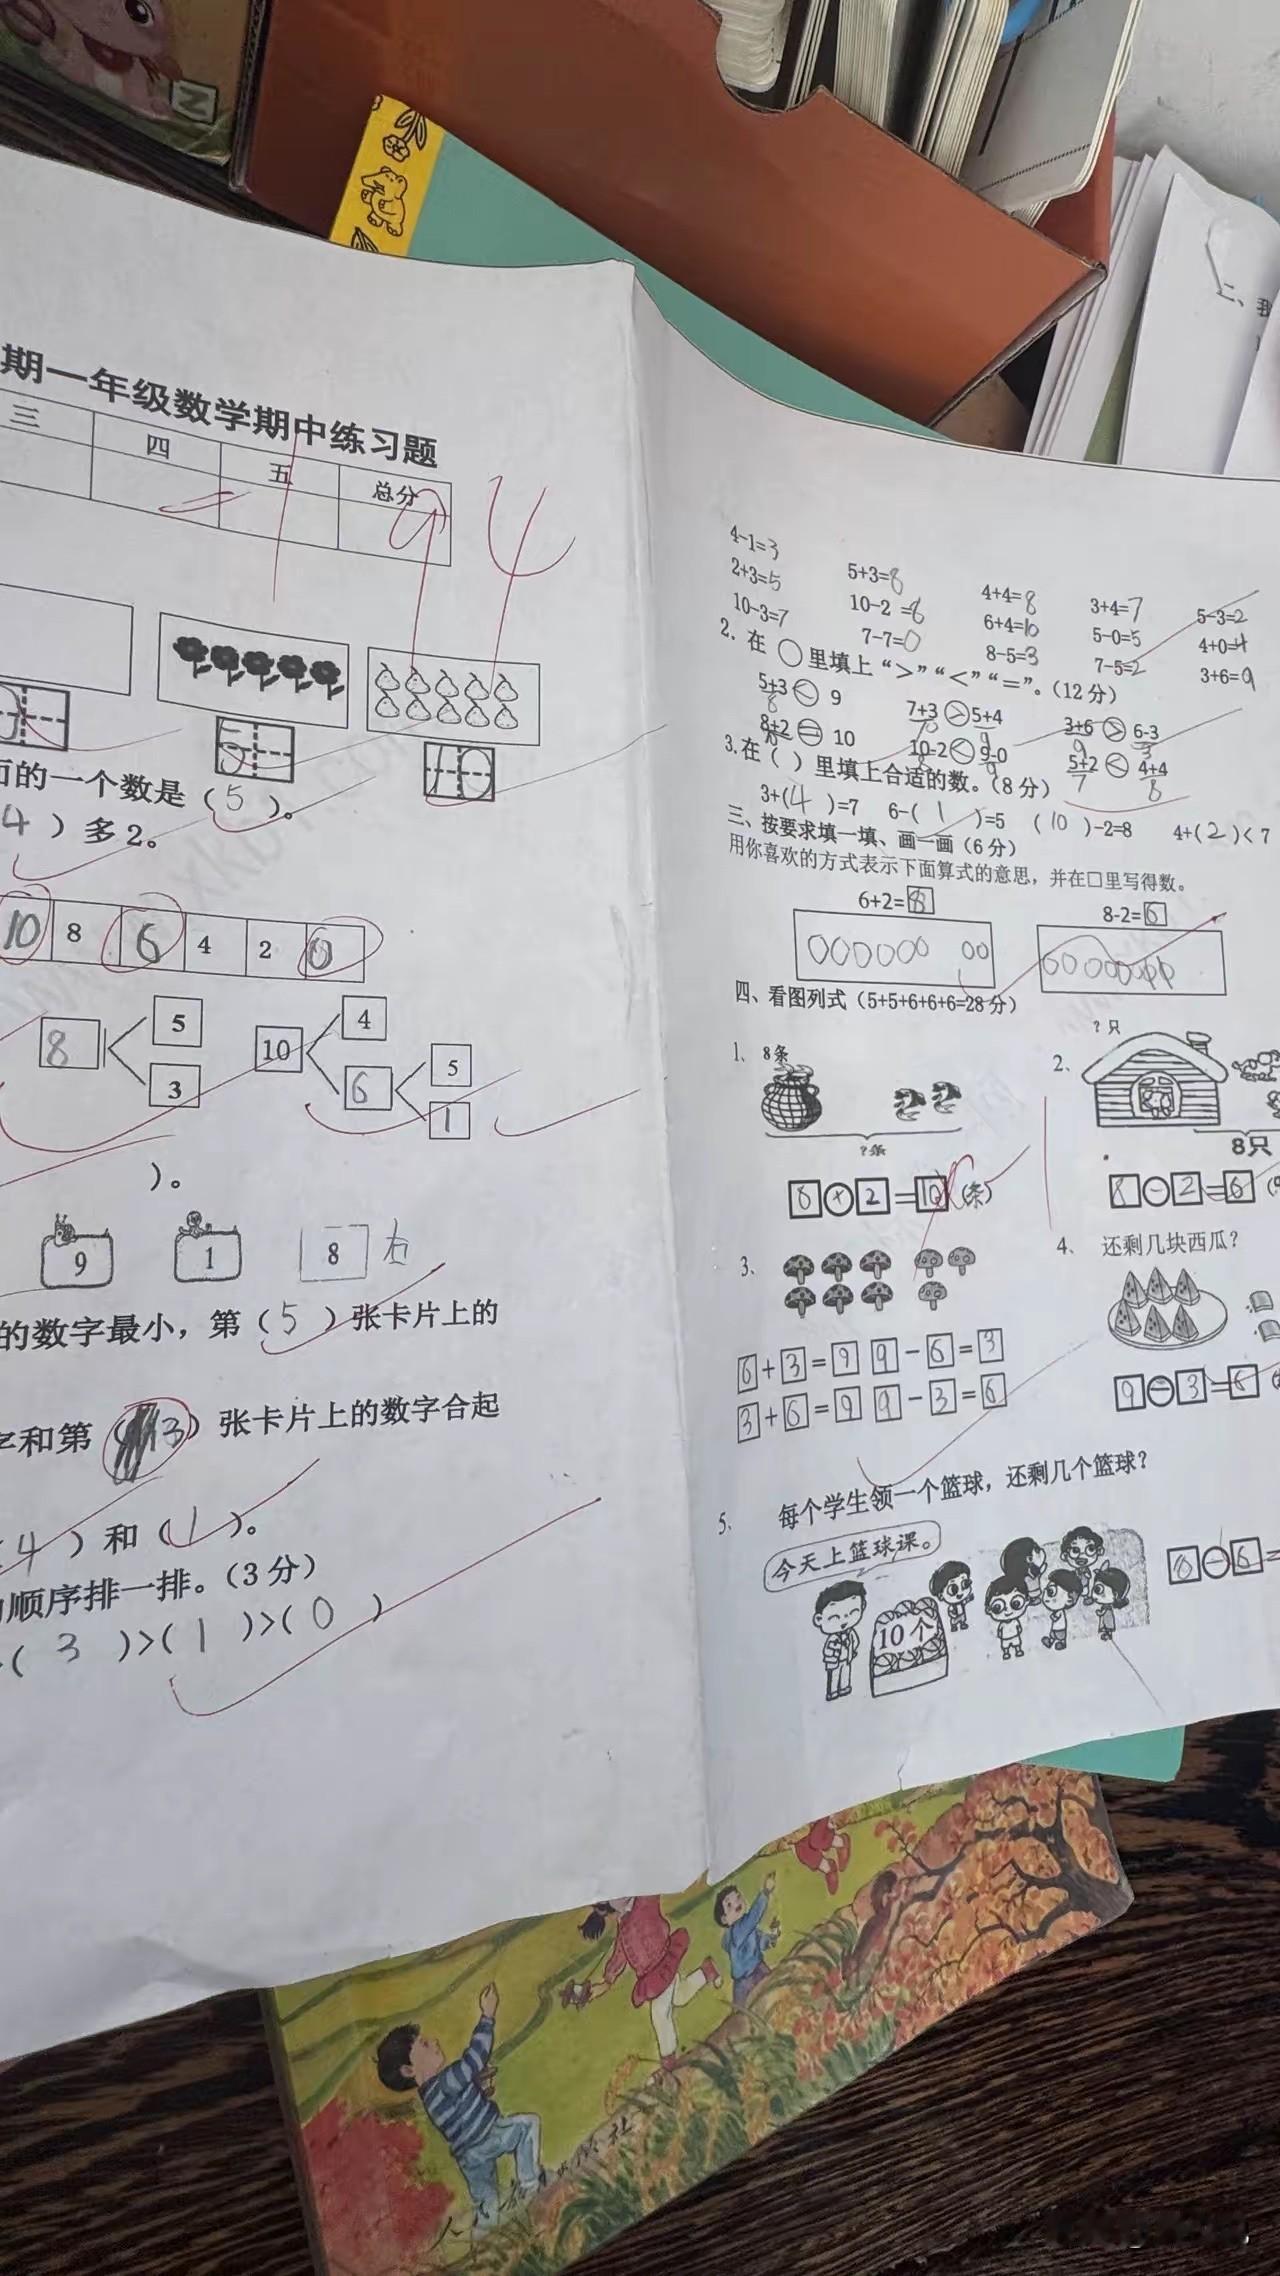 期一年级数学期中练习题
三 四 五 总分
94
5 10
面的一个数是（5）。
4）多2。
10 8 6 4 2 0
8 5 3 10 4 6 5 1
）。
9 1 8 右
的数字最小，第（5）张卡片上的
字和第（3）张卡片上的数字合起
4）和（1）。
顺序排一排。（3分）
（3）>（1）>（0）
4-1=3 5+3=8 4+4=8 3+4=7 5-3=2
2+3=5 10-2=8 6+4=10 5-0=5 4+0=4
10-3=7 7-7=0 8-5=3 7-5=2 3+6=9
2. 在○里填上“>”“<”“=”。（12分）
5+3<9 7+3>5+4 3+6>6-3
8 10 9 9 3
8+2=10 10-2<9-0 5+2<4+4
10 8 9 7 8
3.在（ ）里填上合适的数。（8分）
3+（4）=7 6-（1）=5 （10）-2=8 4+（2）<7
三、按要求填一填、画一画（6分）
用你喜欢的方式表示下面算式的意思，并在□里写得数。
6+2=8 8-2=6
四、看图列式（5+5+6+6+6=28分）
1、 8条
?条
8+2=10（条）
2、 ?只
8只
8-2=6
3、
6+3=9 9-6=3
3+6=9 9-3=6
4、 还剩几块西瓜？
9-3=6
5、 每个学生领一个篮球，还剩几个篮球？
今天上篮球课。
10个
-6=
人民教育出版社